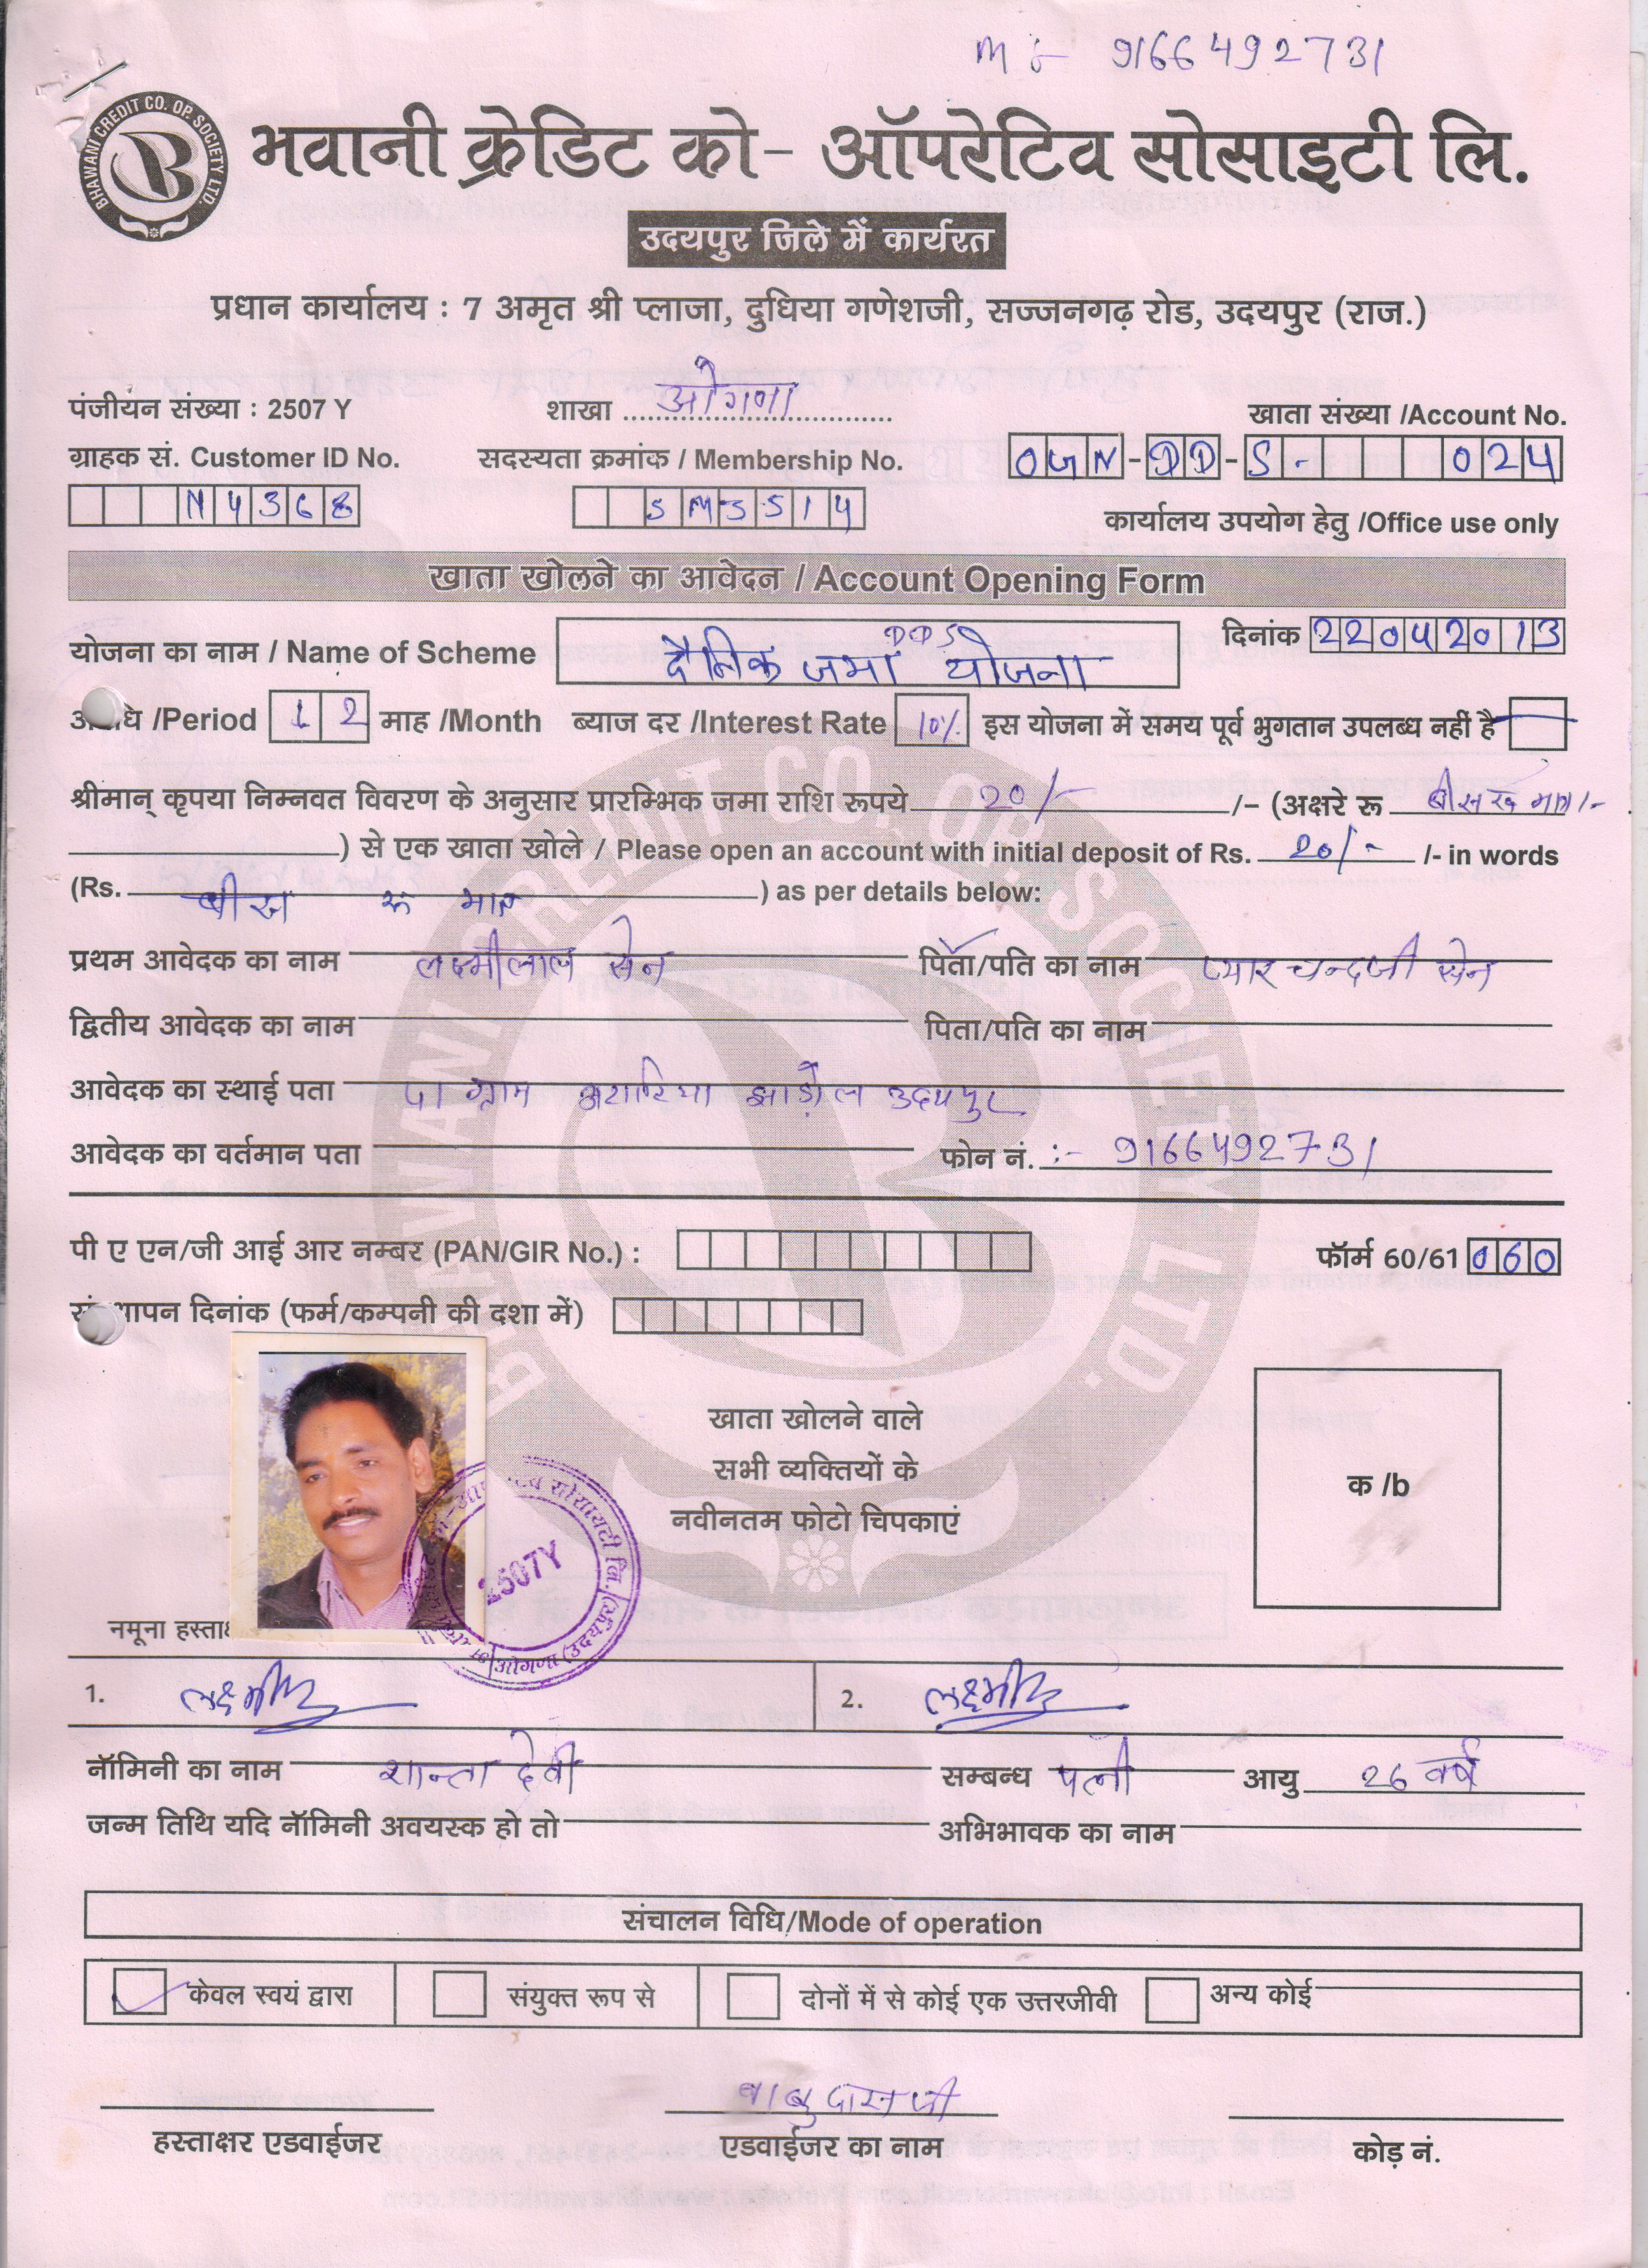 M :- 9166492731
BHAWANI CREDIT CO. OP. SOCIETY LTD.
भवानी क्रेडिट को- ऑपरेटिव सोसाइटी लि.
उदयपुर जिले में कार्यरत
प्रधान कार्यालय : 7 अमृत श्री प्लाजा, दुधिया गणेशजी, सज्जनगढ़ रोड, उदयपुर (राज.)
पंजीयन संख्या : 2507 Y शाखा ओगणा खाता संख्या /Account No.
ग्राहक सं. Customer ID No. सदस्यता क्रमांक / Membership No. OGN-DD-S- 024
N4368 SM3514 कार्यालय उपयोग हेतु /Office use only
खाता खोलने का आवेदन / Account Opening Form
योजना का नाम / Name of Scheme DDS दैनिक जमा योजना दिनांक 22042013
/Period 12 माह /Month ब्याज दर /Interest Rate 10% इस योजना में समय पूर्व भुगतान उपलब्ध नहीं है
श्रीमान् कृपया निम्नवत विवरण के अनुसार प्रारम्भिक जमा राशि रूपये 20/- /- (अक्षरे रू बीस रू मात्र/-
) से एक खाता खोले / Please open an account with initial deposit of Rs. 20/- /- in words
(Rs. बीस रू मात्र ) as per details below:
प्रथम आवेदक का नाम लक्ष्मीलाल सेन पिता/पति का नाम प्यारचन्दजी सेन
द्वितीय आवेदक का नाम पिता/पति का नाम
आवेदक का स्थाई पता ग्राम झाडोल उदयपुर
आवेदक का वर्तमान पता फोन नं. :- 9166492731
पी ए एन/जी आई आर नम्बर (PAN/GIR No.) : फॉर्म 60/61 060
दिनांक (फर्म/कम्पनी की दशा में)
खाता खोलने वाले
सभी व्यक्तियों के
नवीनतम फोटो चिपकाएं
क /b
2507Y
नमूना
1. 2.
नॉमिनी का नाम शान्ता देवी सम्बन्ध पत्नी आयु 26 वर्ष
जन्म तिथि यदि नॉमिनी अवयस्क हो तो अभिभावक का नाम
संचालन विधि/Mode of operation
केवल स्वयं द्वारा संयुक्त रूप से दोनों में से कोई एक उत्तरजीवी अन्य कोई
बाबुदासजी
हस्ताक्षर एडवाईजर एडवाईजर का नाम कोड़ नं.